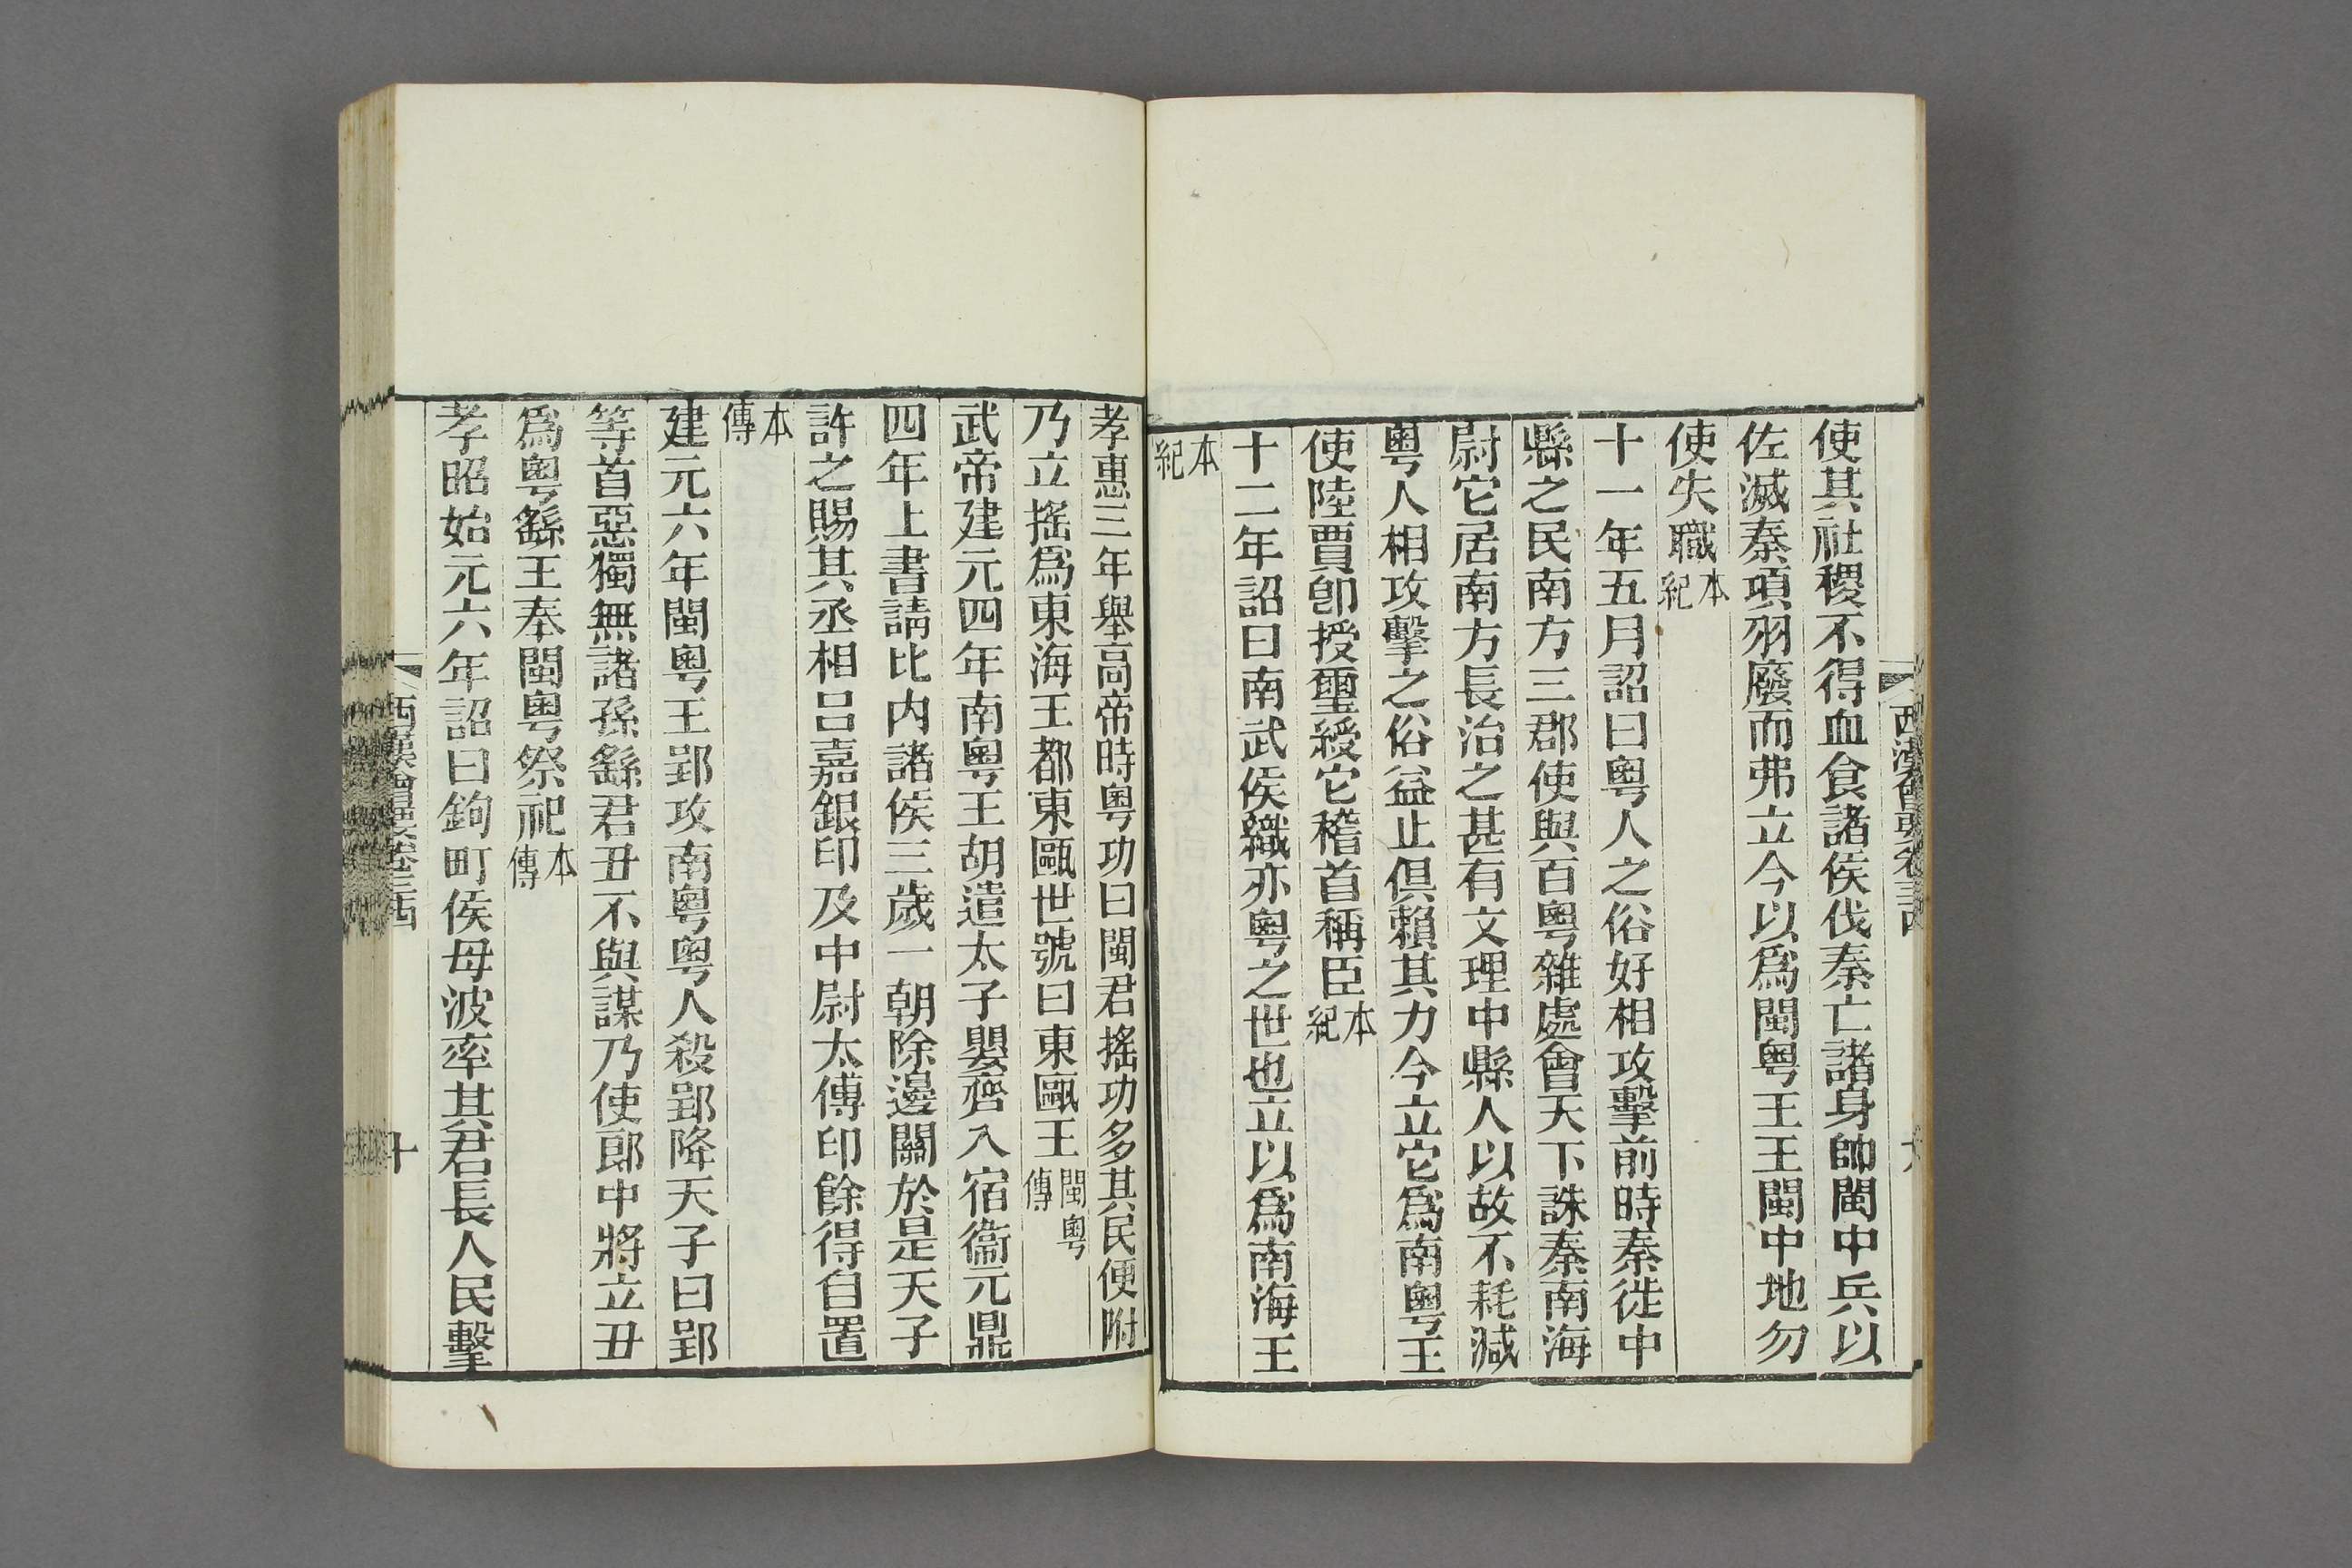 西漢會要卷三十四
使其社稷不得血食諸侯伐秦亡諸身帥閩中兵以
佐滅秦項羽廢而弗立今以爲閩粤王王閩中地勿
使失職本紀
十一年五月詔曰粤人之俗好相攻擊前時秦徙中
縣之民南方三郡使與百粤雜處會天下誅秦南海
尉它居南方長治之甚有文理中縣人以故不耗減
粤人相攻擊之俗益止俱賴其力今立它爲南粤王
使陸賈卽授璽綬它稽首稱臣本紀
十二年詔曰南武侯織亦粤之世也立以爲南海王
本紀
孝惠三年舉高帝時粤功曰閩君搖功多其民便附
乃立搖爲東海王都東甌世號曰東甌王閩粤傳
武帝建元四年南粤王胡遣太子嬰齊入宿衞元鼎
四年上書請比内諸侯三歲一朝除邊關於是天子
許之賜其丞相呂嘉銀印及中尉太傅印餘得自置
本傳
建元六年閩粤王郢攻南粤粤人殺郢降天子曰郢
等首惡獨無諸孫繇君丑不與謀乃使郎中將立丑
爲粤繇王奉閩粤祭祀本傳
孝昭始元六年詔曰鉤町侯母波率其君長人民擊
西漢會要卷三十四
十